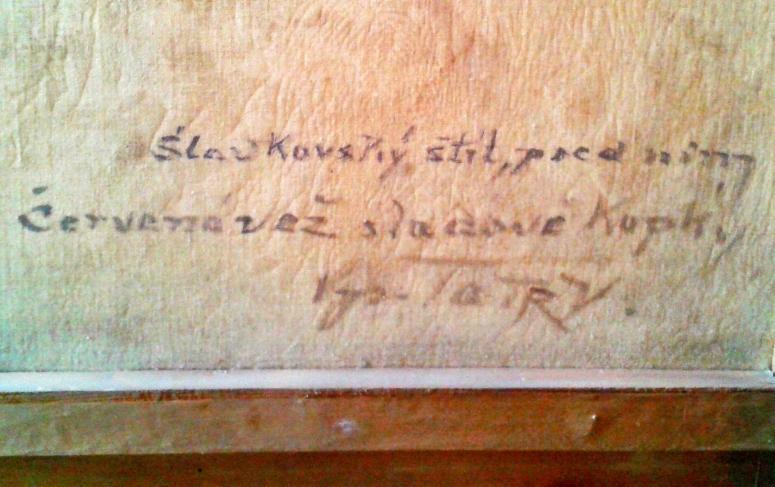 Slavkovský štít, pred ním
Červená vež sladové Kopky
Vys. TATRY.